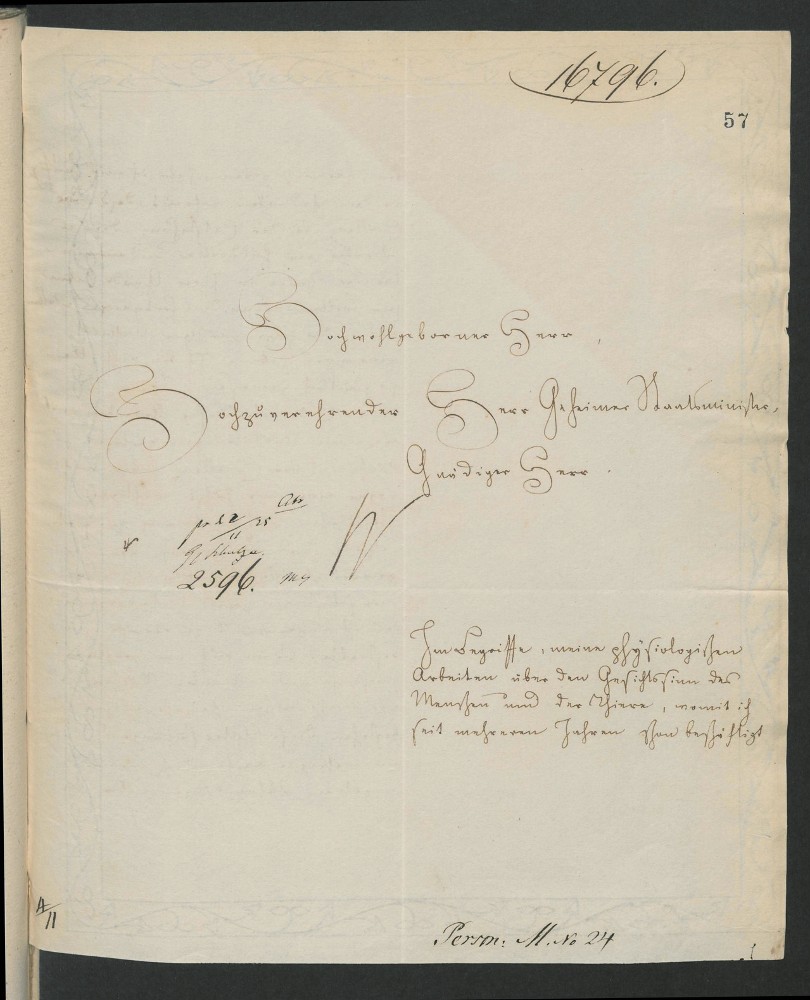 16796.
57
Hochwohlgeborner Herr,
Hochzuverehrender Herr Geheimer Staatsminister,
Gnädiger Herr.
2596.
Im Begriffe, meine physiologischen
Arbeiten über den Gesichtssinn des
Menschen und der Thiere, womit ich
seit mehreren Jahren schon beschäftigt
A/11
Person: M. No 24